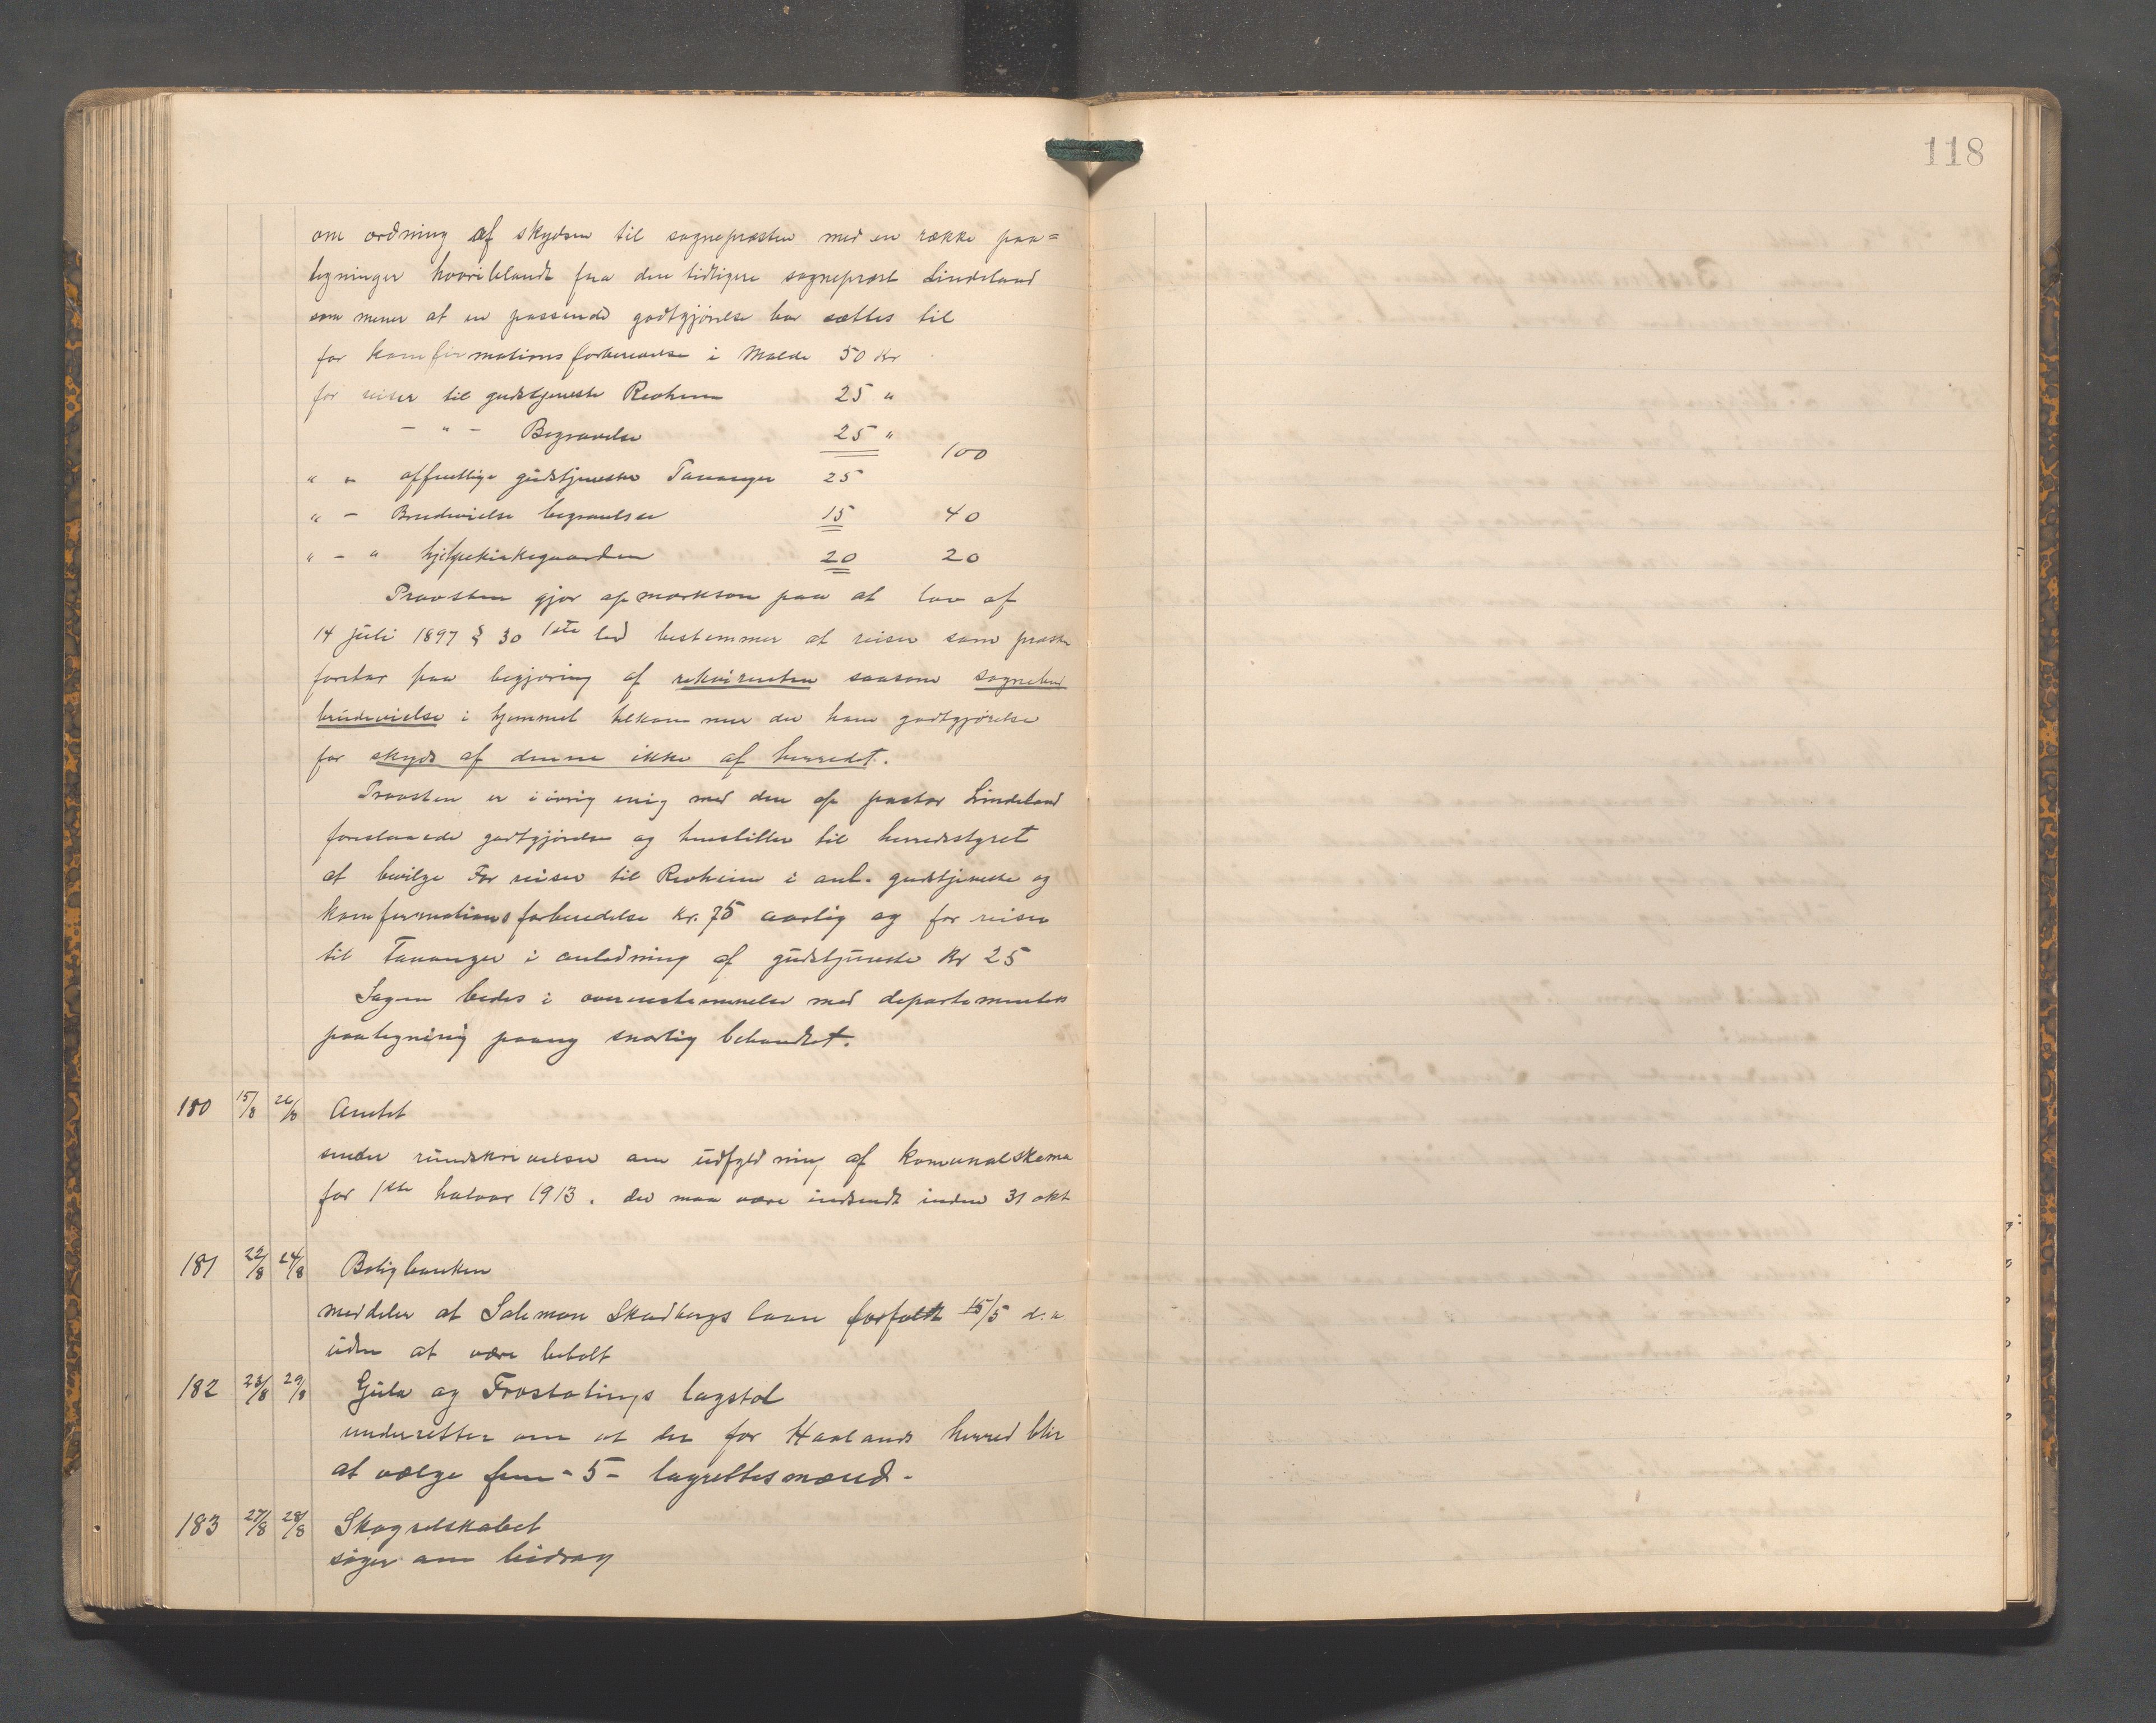 118
om ordning af skydsen til sognepræsten med en række paa=
tegninger hvoriblandt fra den tidligere sogneprest Lindeland
som mener at en passende godtgjørelse bør sættes til
for konfirmationsforberedelse i Malde 50 Kr
for reiser til gudstjeneste Revheim 25 "
- " - Begravelse 25 " 100
" " offentlige gudstjenester Tananger 25
" - Brudevielse begravelser 15 40
" - " hjelpekirkegaarden 20 20
Provsten gjør opmerksom paa at lov af
14 juli 1897 § 30 1ste led bestemmer at reiser som præsten
foretar paa begjæring af rekvirenten saasom sognebud
brudevielse i hjemmet tilkommer der ham godtgjørelse
for skyds af denne ikke af herredet.
Provsten er i øvrig enig med den af pastor Lindeland
foreslaaede godtgjørelse og henstiller til herredsstyret
at bevilge For reiser til Revheim i anl. gudstjeneste og
konfirmationsforberedelse Kr. 75 aarlig og for reiser
til Tananger i anledning af gudstjeneste Kr 25
Sagen bedes i overensstemmelse med departementets
paategning paany snarlig behandlet.
180 15/8 26/8 Amtet
sender rundskrivelse om udfyldning af komunalskema
for 1ste halvaar 1913. der maa være indsendt inden 31 okt
181 22/8 24/8 Boligbanken
meddeler at Salemon Skadbergs laan forfaldt 15/5 d.a
uden at være betalt
182 28/8 29/8 Gula og Frostatings lagstol
underretter om at der for Haalands herred blir
at vælge fem - 5 - lagrettesmænd -
183 27/8 28/8 Skogselskabet
søger om bidrag